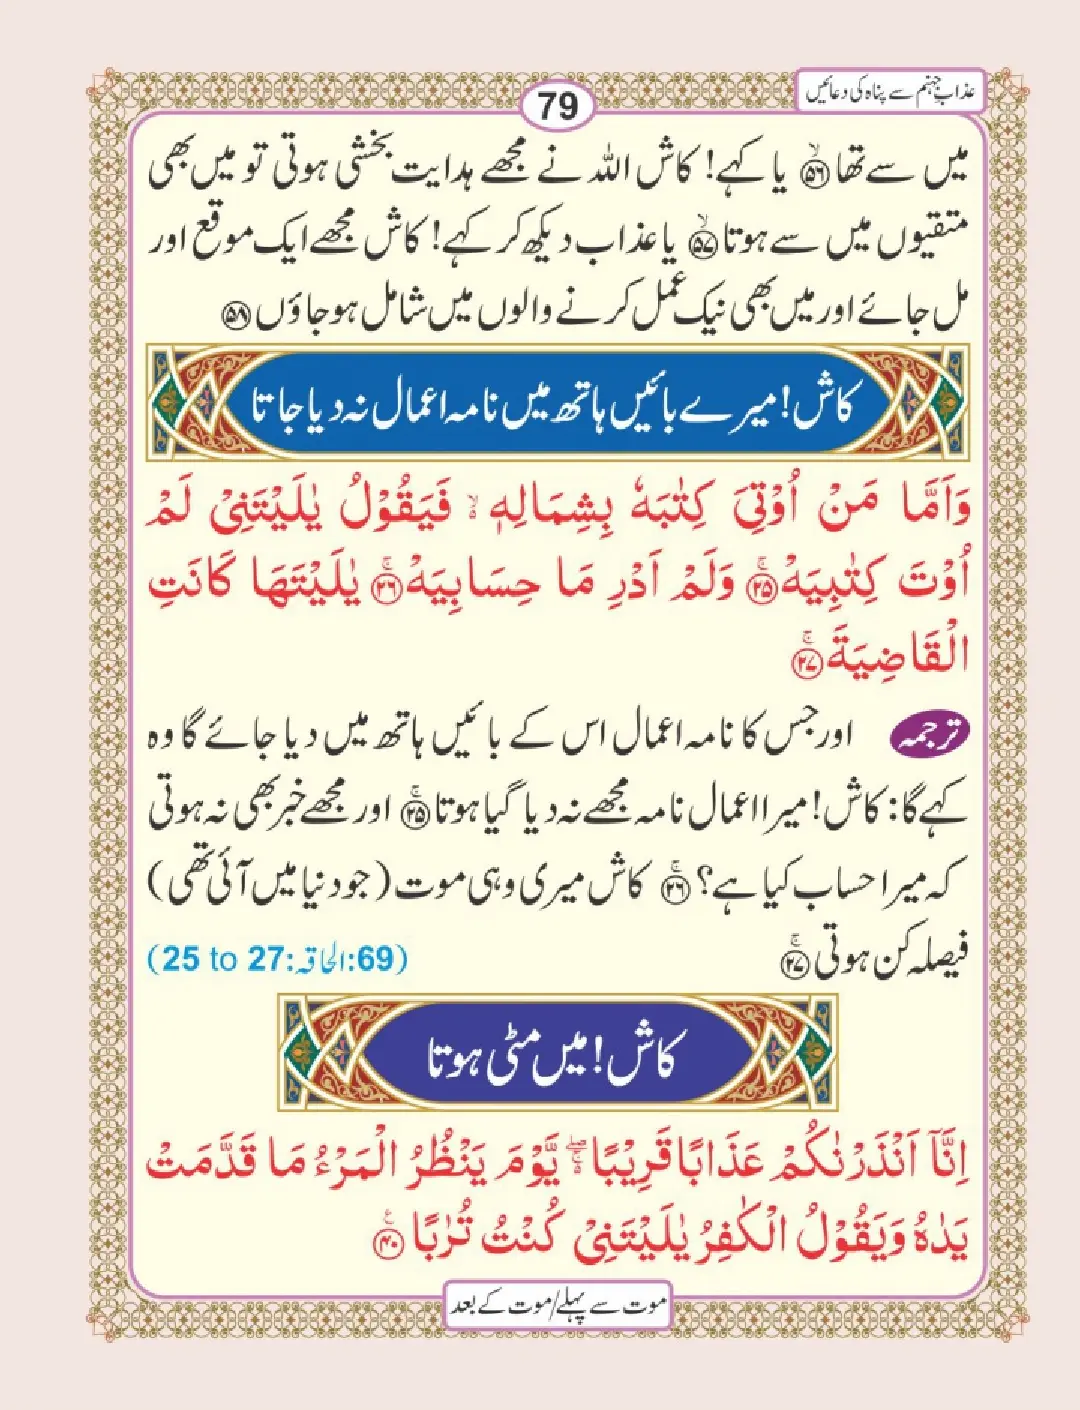 عذابِ جہنم سے پناہ کی دعائیں
79
میں سے تھا ﴿۵۶﴾ یا کہے! کاش اللہ نے مجھے ہدایت بخشی ہوتی تو میں بھی
متقیوں میں سے ہوتا ﴿۵۷﴾ یا عذاب دیکھ کر کہے! کاش مجھے ایک موقع اور
مل جائے اور میں بھی نیک عمل کرنے والوں میں شامل ہو جاؤں ﴿۵۸﴾
کاش! میرے بائیں ہاتھ میں نامہ اعمال نہ دیا جاتا
وَاَمَّا مَنْ اُوْتِیَ كِتٰبَهٗ بِشِمَالِهٖ ۙ فَیَقُوْلُ یٰلَیْتَنِیْ لَمْ
اُوْتَ كِتٰبِیَهْ ﴿۲۵﴾ۚ وَلَمْ اَدْرِ مَا حِسَابِیَهْ ﴿۲۶﴾ۚ یٰلَیْتَهَا كَانَتِ
الْقَاضِیَةَ ﴿۲۷﴾ۚ
ترجمہ اور جس کا نامہ اعمال اس کے بائیں ہاتھ میں دیا جائے گا وہ
کہے گا: کاش! میرا اعمال نامہ مجھے نہ دیا گیا ہوتا ﴿۲۵﴾ۚ اور مجھے خبر بھی نہ ہوتی
کہ میرا حساب کیا ہے؟ ﴿۲۶﴾ۚ کاش میری وہی موت (جو دنیا میں آئی تھی)
فیصلہ کن ہوتی ﴿۲۷﴾ۚ (69:الحاقہ:27 to 25)
کاش! میں مٹی ہوتا
اِنَّاۤ اَنْذَرْنٰكُمْ عَذَابًا قَرِیْبًا ۖۚ۬ یَّوْمَ یَنْظُرُ الْمَرْءُ مَا قَدَّمَتْ
یَدٰهُ وَیَقُوْلُ الْكٰفِرُ یٰلَیْتَنِیْ كُنْتُ تُرٰبًا ﴿۴۰﴾
موت سے پہلے/موت کے بعد